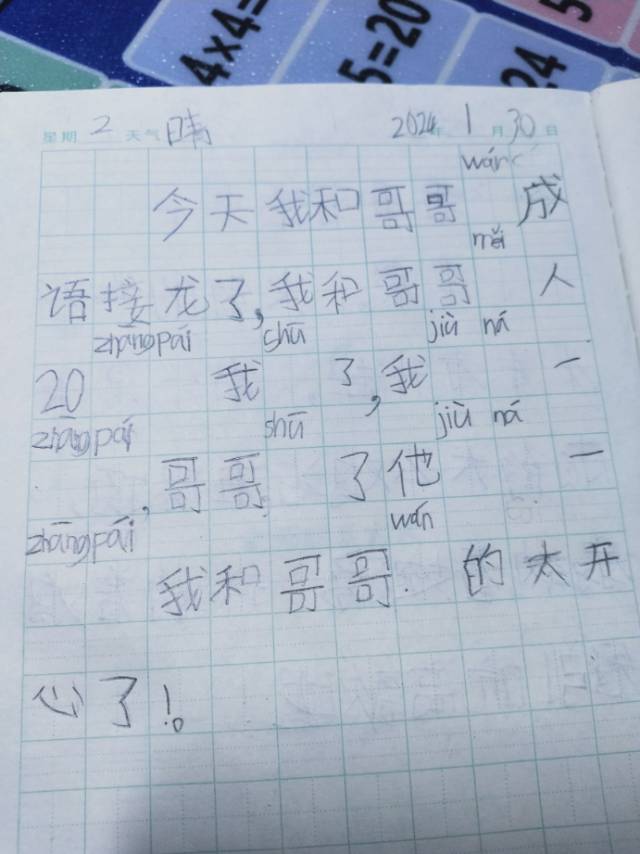 4×4=
5=20
24
5
星期 2 天气 晴 2024年 1月30日
wán
今天我和哥哥 成
měi
语接龙了,我和哥哥 人
zhāngpái shū jiù ná
20 我 了,我 一
zhāngpái shū jiù ná
,哥哥 了他 一
zhāngpái wán
我和哥哥 的太开
心了!。